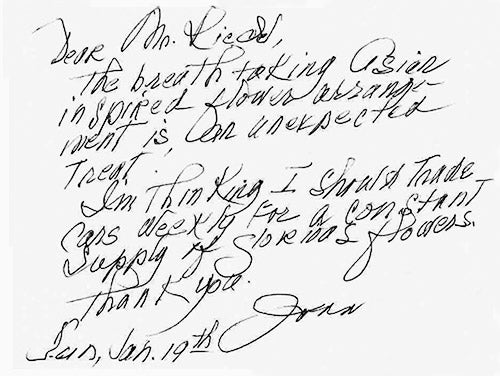 Dear Mr. Ricard,
The breath taking Asian
inspired flower arrange-
ment is, an unexpected
Treat.
I'm thinking I should Trade
cars weekly for a constant
supply of flowers.
Thank you.
Joan
Sun, Jan. 19th